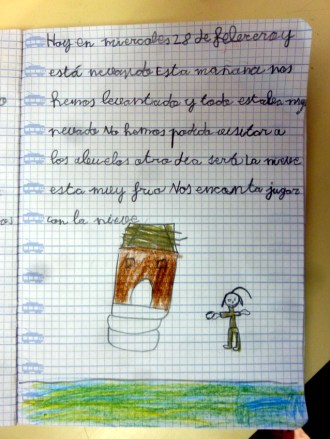 Hoy en miercoles 28 de febrero y
está nevando Esta mañana nos
hemos levantado y todo estaba muy
nevado No hemos podido visitar a
los abuelos otro dia será La nieve
esta muy fria Nos encanta jugar
con la nieve